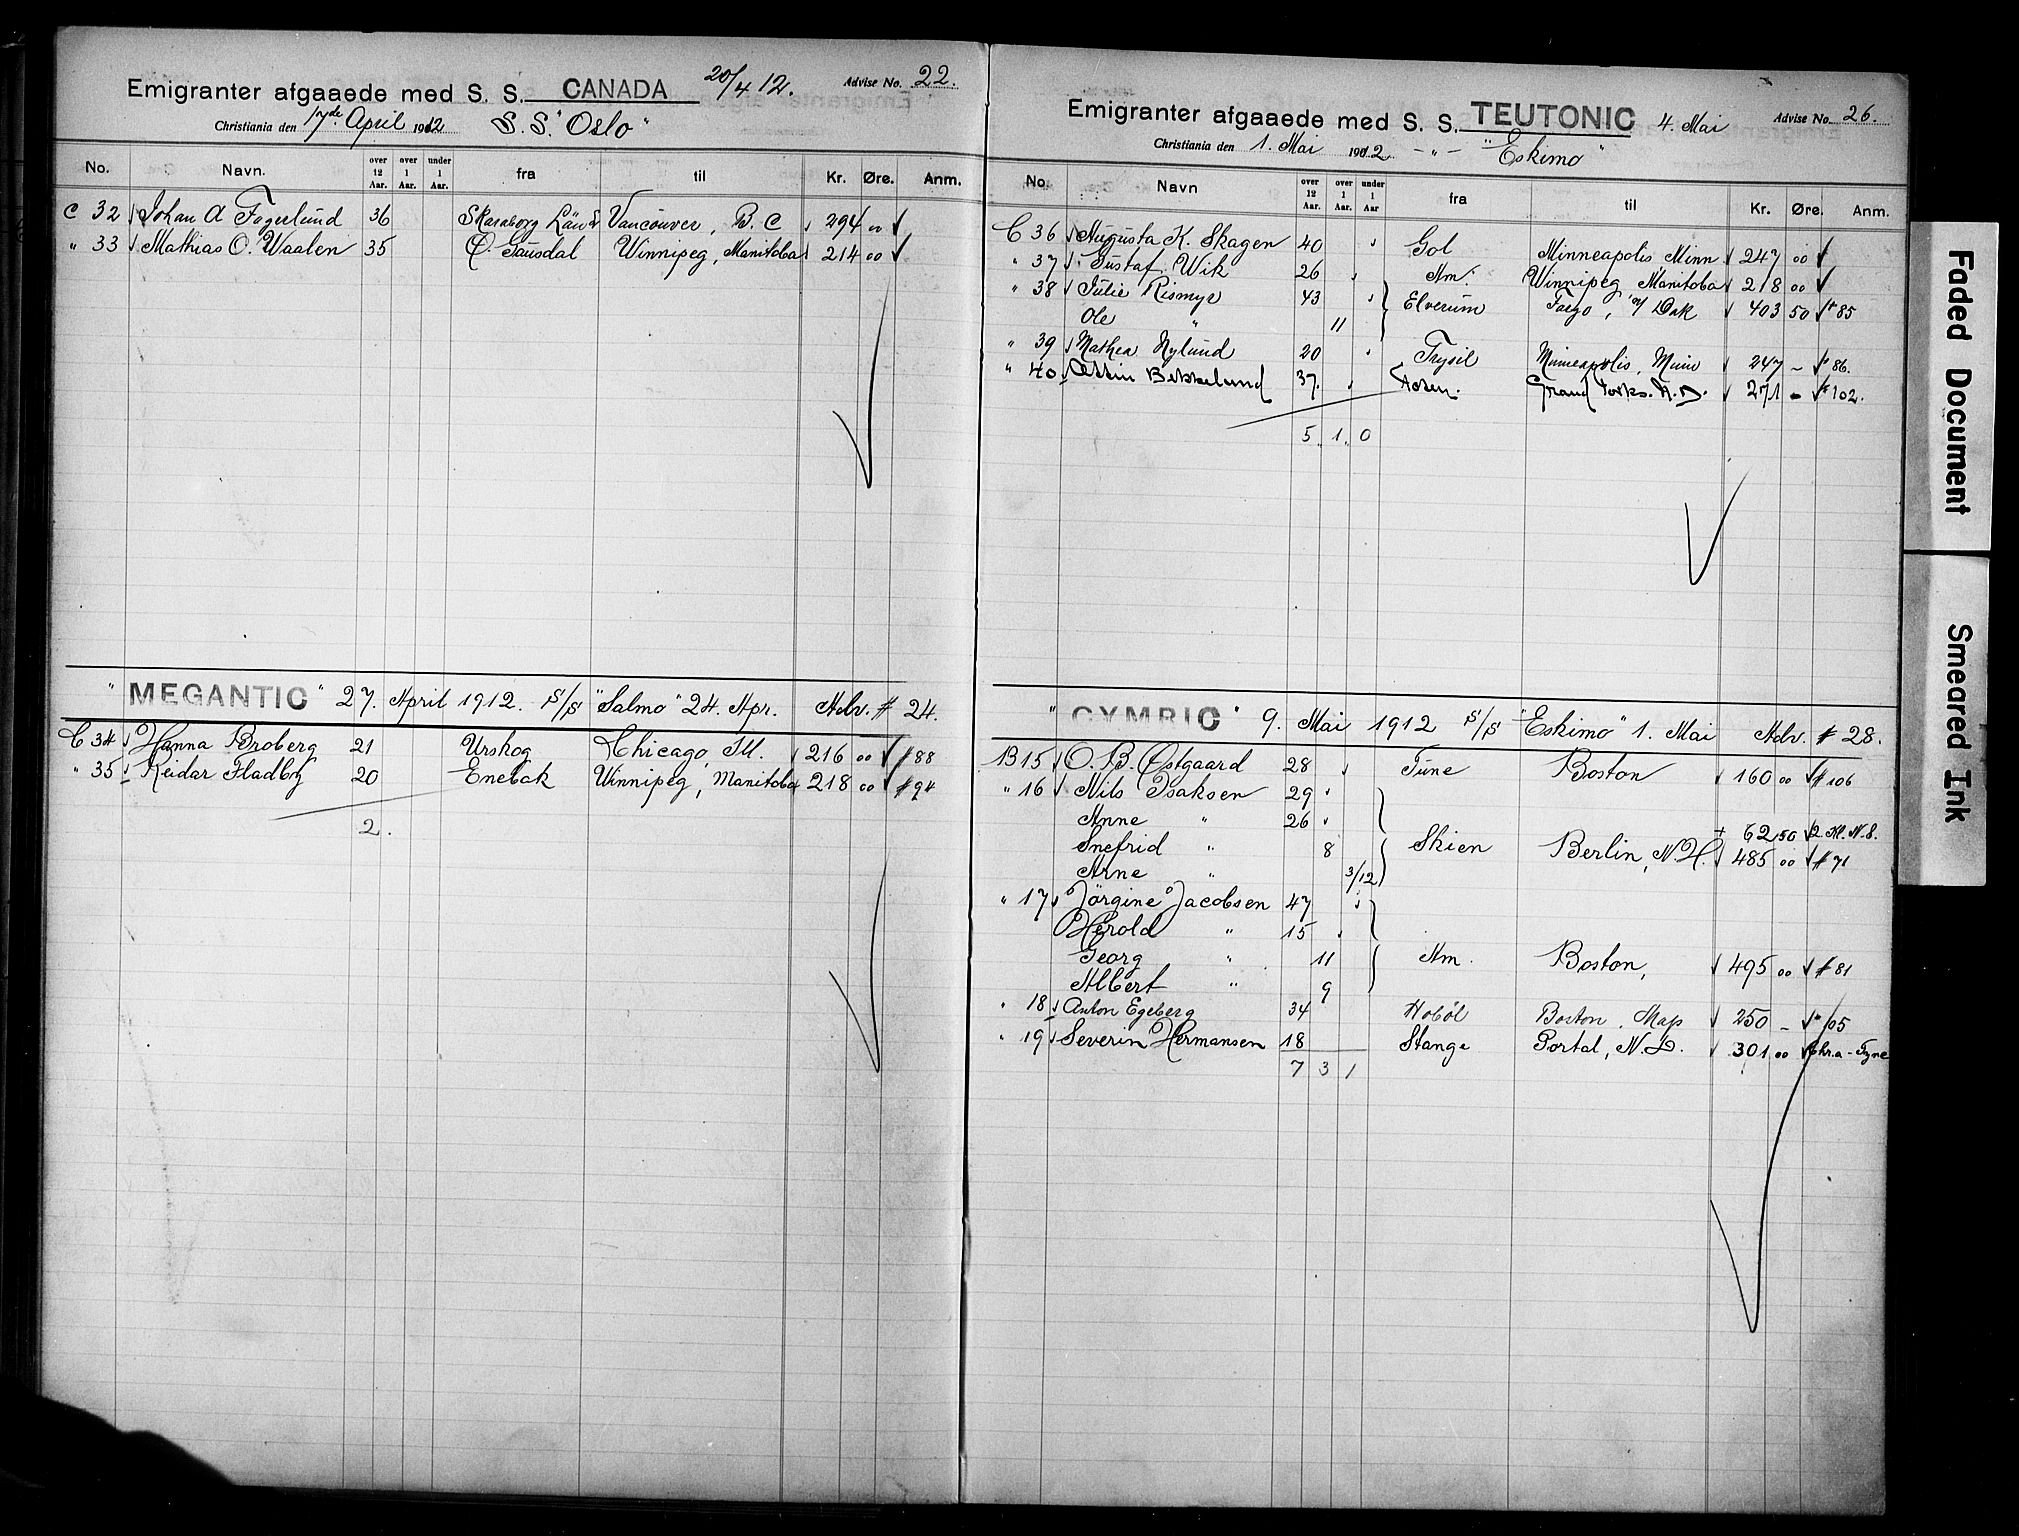 Emigranter afgaaede med S. S. CANADA 20/4 12. Advise No. 22.
Christiania den 17de April 1912 S.S. "Oslo"
No. Navn. over 12 Aar. over 1 Aar. under 1 Aar. fra til Kr. Øre. Anm.
C 32 Johan A Fagerlund 36 Skaraborg Län Vancouver, B. C 294 00
" 33 Mathias O. Waalen 35 Ø. Gausdal Winnipeg, Manitoba 214 00
"MEGANTIC" 27. April 1912. S/S "Salmo" 24. Apr. Adv. # 24.
C 34 Hanna Broberg 21 Urskog Chicago, Ill. 216 00 # 88
" 35 Reidar Fladby 20 Enebak Winnipeg, Manitoba 218 00 # 94
2.
Emigranter afgaaede med S. S. TEUTONIC 4. Mai Advise No. 26.
Christiania den 1. Mai 1912 - " - "Eskimo"
No. Navn over 12 Aar. over 1 Aar. under 1 Aar fra til Kr. Øre. Anm.
C 36 Augusta K. Skagen 40 Gol Minneapolis Minn 247 00
" 37 Gustaf Wik 26 Am. Winnipeg Manitoba 218 00
" 38 Julie Rismyr 43 Elverum Fargo, N Dak 403 50 # 85
Ole " 11
" 39 Mathea Nylund 20 Trysil Minneapolis, Minn 247 - # 86.
" 40 Bekkelund 37. Grand Forks. N. D. 271 - # 102.
5. 1. 0
"CYMRIC" 9. Mai 1912 S/S "Eskimo" 1. Mai Adv. # 28.
B 15 O. B. Østgaard 28 Tune Boston 160 00 # 106
" 16 Nils Isaksen 29
Anne " 26
+ 62 50 2 Kl. N.S.
Snefrid " 8 Skien Berlin, N.H. 485 00 # 71
Arne " 3/12
" 17 Jörgine Jacobsen 47
Herold " 15
Georg " 11 Am. Boston, 495 00 # 81
Albert " 9
" 18 Anton Egeberg 34 Hoböl Boston. Mass 250 - " 105
" 19 Severin Hermansen 18 Stange Portal, N.D. 301 00 Chr.a - Tyne
7 3 1
Faded Document
Smeared Ink